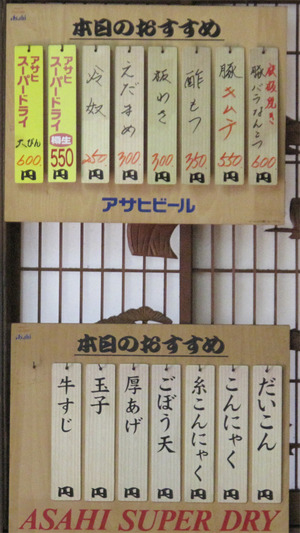 Asahi
本日のおすすめ
鉄板焼き
豚バラなんこつ
600
円
豚キムチ
550
円
酢もつ
350
円
板わさ
300
円
えだまめ
300
円
冷奴
250
円
アサヒ
スーパードライ
樽生
550
円
アサヒ
スーパードライ
大びん
600
円
アサヒビール
Asahi
本日のおすすめ
だいこん
円
こんにゃく
円
糸こんにゃく
円
ごぼう天
円
厚あげ
円
玉子
円
牛すじ
円
ASAHI SUPER DRY